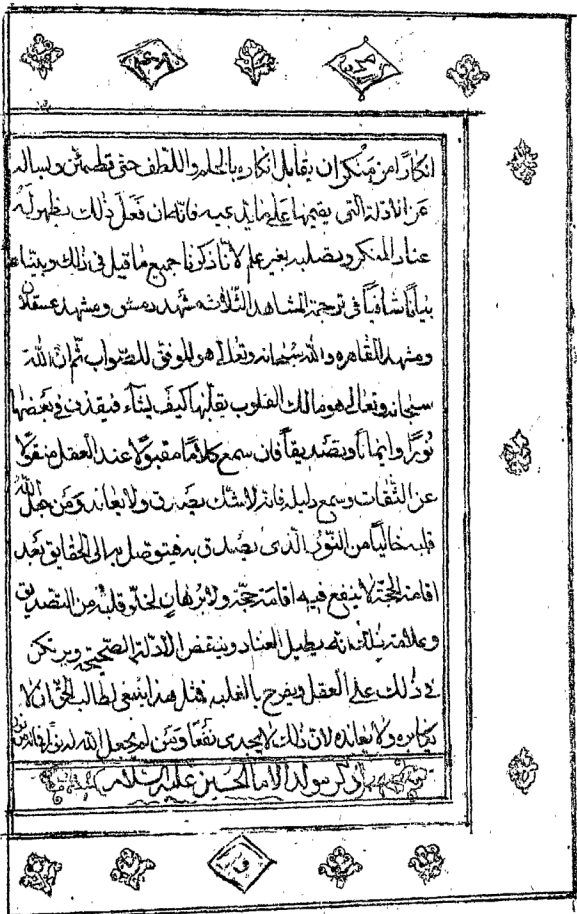 انكارًا من منكر ان يقابل انكاره بالحلم واللطف حتى تطمئن ويساله
عن الادلة التى يقيمها على ما يدعيه فانه ان فعل ذلك يظهر له
عناد المنكر وتصلبه بغير علم لاننا ذكرنا جميع ما قيل فى ذلك وبيناه
بيانًا شافيًا فى ترجمة المشاهد الثلاث مشهد دمشق ومشهد عسقلان
ومشهد القاهره والله سبحانه وتعالى هو الموفق للصواب ثم ان الله
سبحانه وتعالى هو مالك القلوب يقلبها كيف يشاء فيقذف فى بعضها
نورًا وايمانًا وتصديقًا فان سمع كلامًا مقبولًا عند العقل منقولًا
عن الثقات وسمع دليله فانه لا شك يصدق ولا يعاند ومن جعل الله
قلبه خاليًا من النور الذى يصدق به فيتوصل به الى الحقايق بعد
اقامة الحجة لا ينفع فيه اقامة حجة ولا برهان لخلو قلبه من التصديق
وعلامة ذلك انه يطيل العناد وينقض الادلة الصحيحة ويرتكن
فى ذلك على العقل ويفرح بالغلبه فمثل هذا ينبغى لطالب الحق ان لا
يكابره ولا يعانده لان ذلك لا يجدى نفعًا ومن لم يجعل الله له نورًا فما له من نور
ذكر مولد الامام الحسين عليه السلام